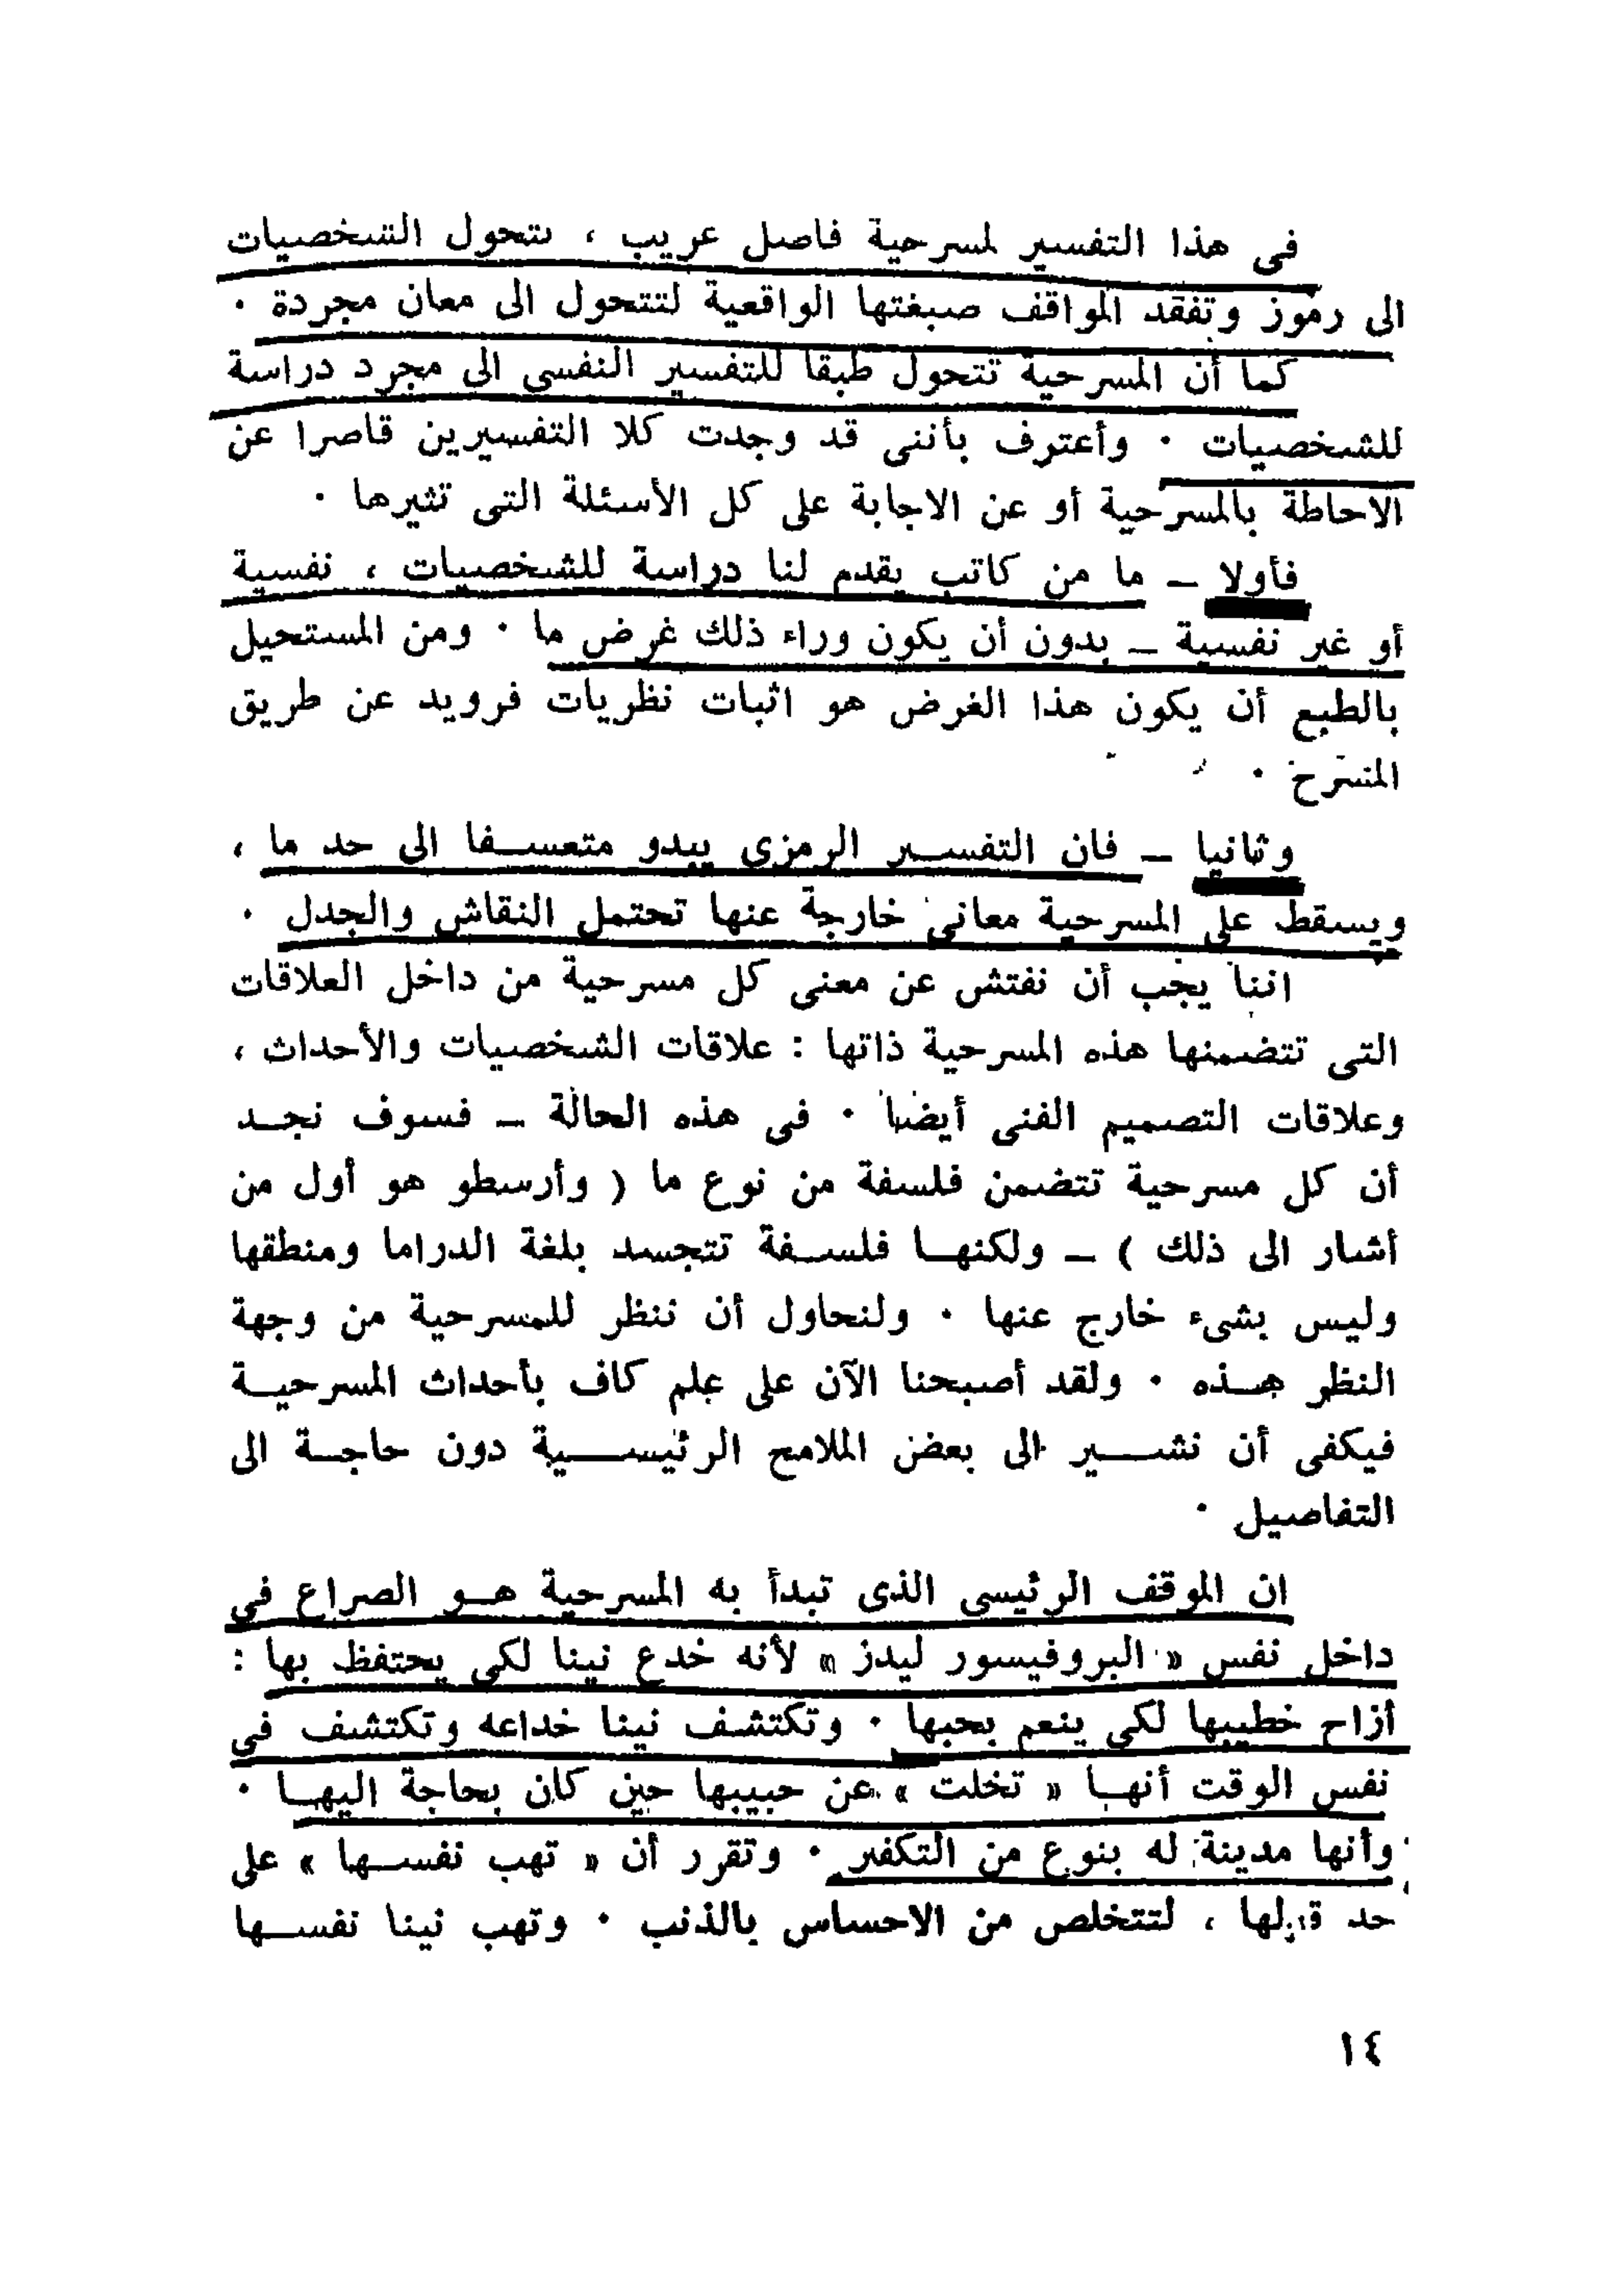 فى هذا التفسير لمسرحية فاصل غريب ، تتحول الشخصيات
الى رموز وتفقد المواقف صبغتها الواقعية لتتحول الى معان مجردة ٠
كما أن المسرحية تتحول طبقا للتفسير النفسى الى مجرد دراسة
للشخصيات ٠ وأعترف بأننى قد وجدت كلا التفسيرين قاصرا عن
الاحاطة بالمسرحية أو عن الاجابة على كل الأسئلة التى تثيرها ٠
فأولا — ما من كاتب يقدم لنا دراسة للشخصيات ، نفسية
أو غير نفسية — بدون أن يكون وراء ذلك غرض ما ٠ ومن المستحيل
بالطبع أن يكون هذا الغرض هو اثبات نظريات فرويد عن طريق
المسرح ٠
وثانيا — فان التفسير الرمزى يبدو متعسفا الى حد ما ،
ويسقط على المسرحية معانى خارجة عنها تحتمل النقاش والجدل ٠
اننا يجب أن نفتش عن معنى كل مسرحية من داخل العلاقات
التى تتضمنها هذه المسرحية ذاتها : علاقات الشخصيات والأحداث ،
وعلاقات التصميم الفنى أيضا ٠ فى هذه الحالة — فسوف نجد
أن كل مسرحية تتضمن فلسفة من نوع ما ( وأرسطو هو أول من
أشار الى ذلك ) — ولكنها فلسفة تتجسد بلغة الدراما ومنطقها
وليس بشىء خارج عنها ٠ ولنحاول أن ننظر للمسرحية من وجهة
النظر هذه ٠ ولقد أصبحنا الآن على علم كاف بأحداث المسرحية
فيكفى أن نشير الى بعض الملامح الرئيسية دون حاجة الى
التفاصيل ٠
ان الموقف الرئيسى الذى تبدأ به المسرحية هو الصراع فى
داخل نفس « البروفيسور ليدز » لأنه خدع نينا لكى يحتفظ بها :
أزاح خطيبها لكى ينعم بحبها ٠ وتكتشف نينا خداعه وتكتشف فى
نفس الوقت أنها « تخلت » عن حبيبها حين كان بحاجة اليها ٠
وأنها مدينة له بنوع من التكفير ٠ وتقرر أن « تهب نفسها » على
حد قولها ، لتتخلص من الاحساس بالذنب ٠ وتهب نينا نفسها
١٤